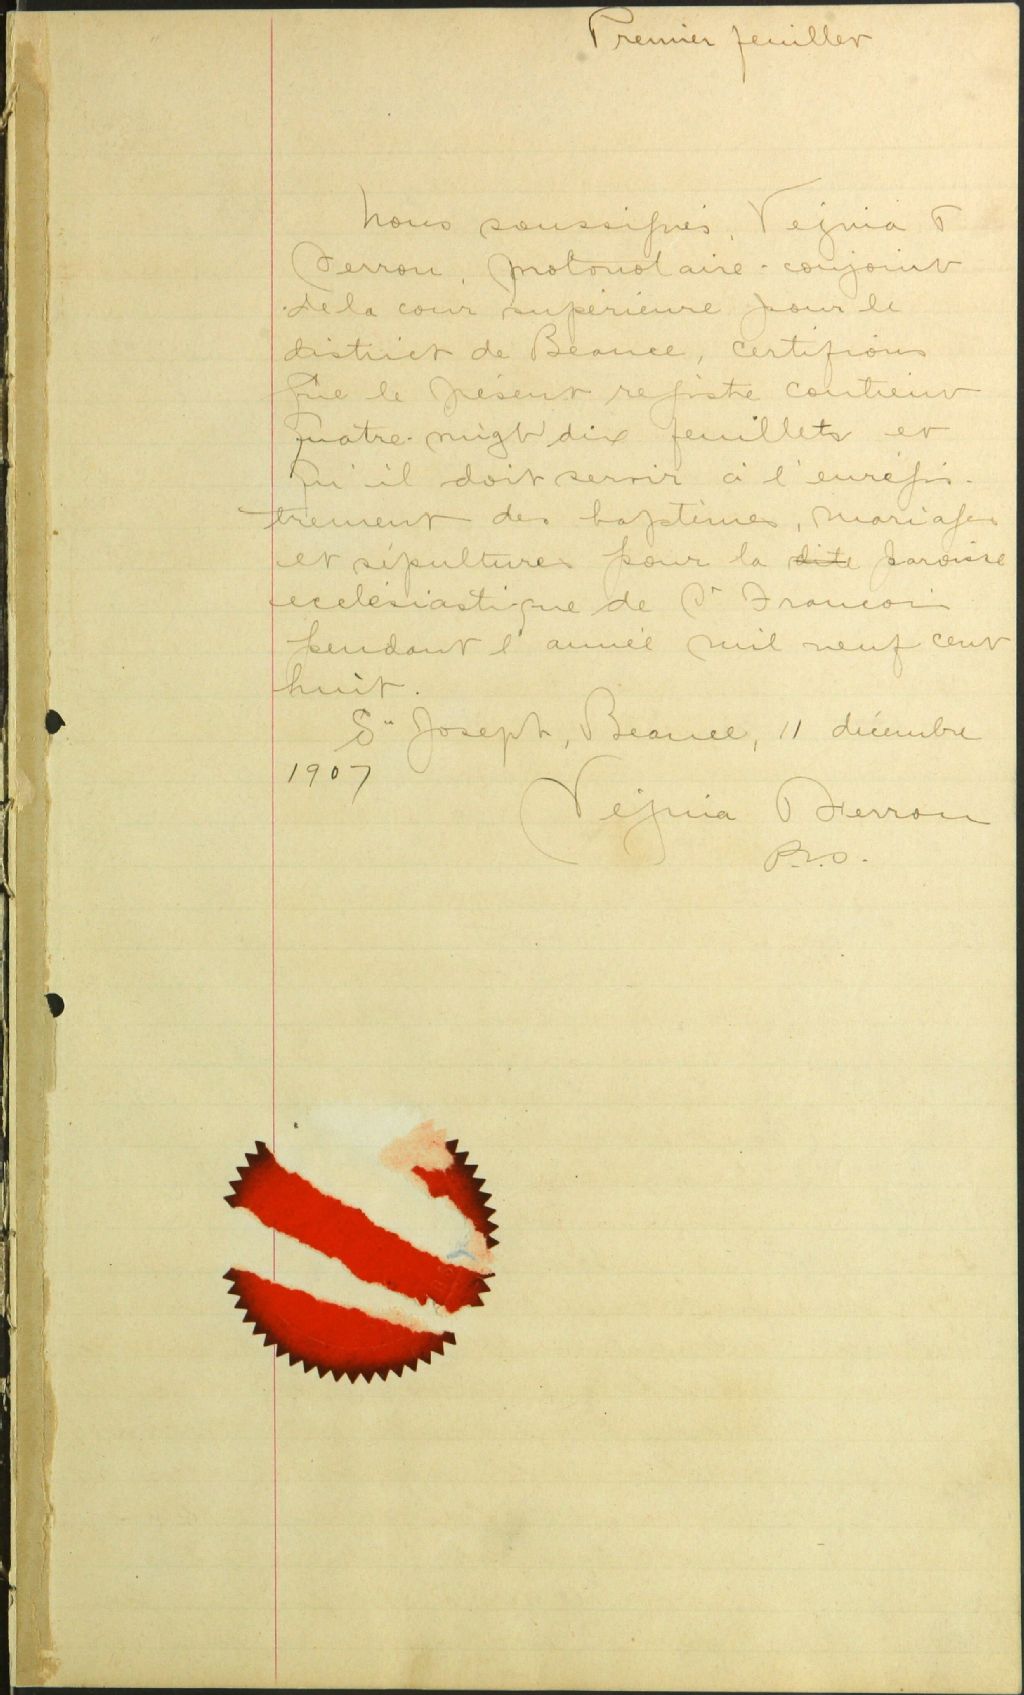 Premier feuillet
Nous soussignés, Vezina T
Ferron, protonotaire-conjoint
de la cour supérieure pour le
district de Beauce, certifions
que le présent registre contient
quatre-vingt dix feuillets et
qu'il doit servir à l'enrégis-
trement des baptêmes, mariages
et sépultures pour la dite paroisse
ecclésiastique de St Francois
pendant l'année mil neuf cent
huit.
St Joseph, Beauce, 11 décembre
1907
Ferron
P.C.S.